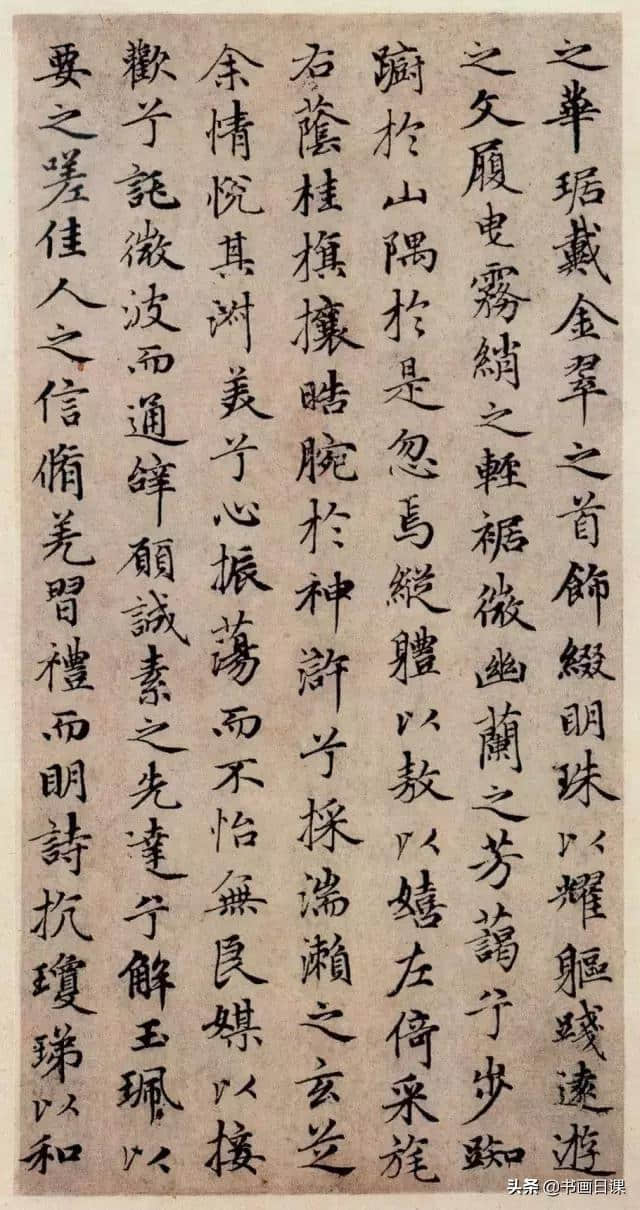 之華琚戴金翠之首飾綴明珠以耀軀踐遠遊
之文履曳霧綃之輕裾微幽蘭之芳藹兮步踟
蹰於山隅於是忽焉縱體以敖以嬉左倚采旄
右蔭桂旗攘皓腕於神滸兮採湍瀨之玄芝
余情悅其淑美兮心振蕩而不怡無良媒以接
歡兮託微波而通辭願誠素之先達兮解玉珮以
要之嗟佳人之信脩羌習禮而明詩抗瓊珶以和
头条 @书画日课